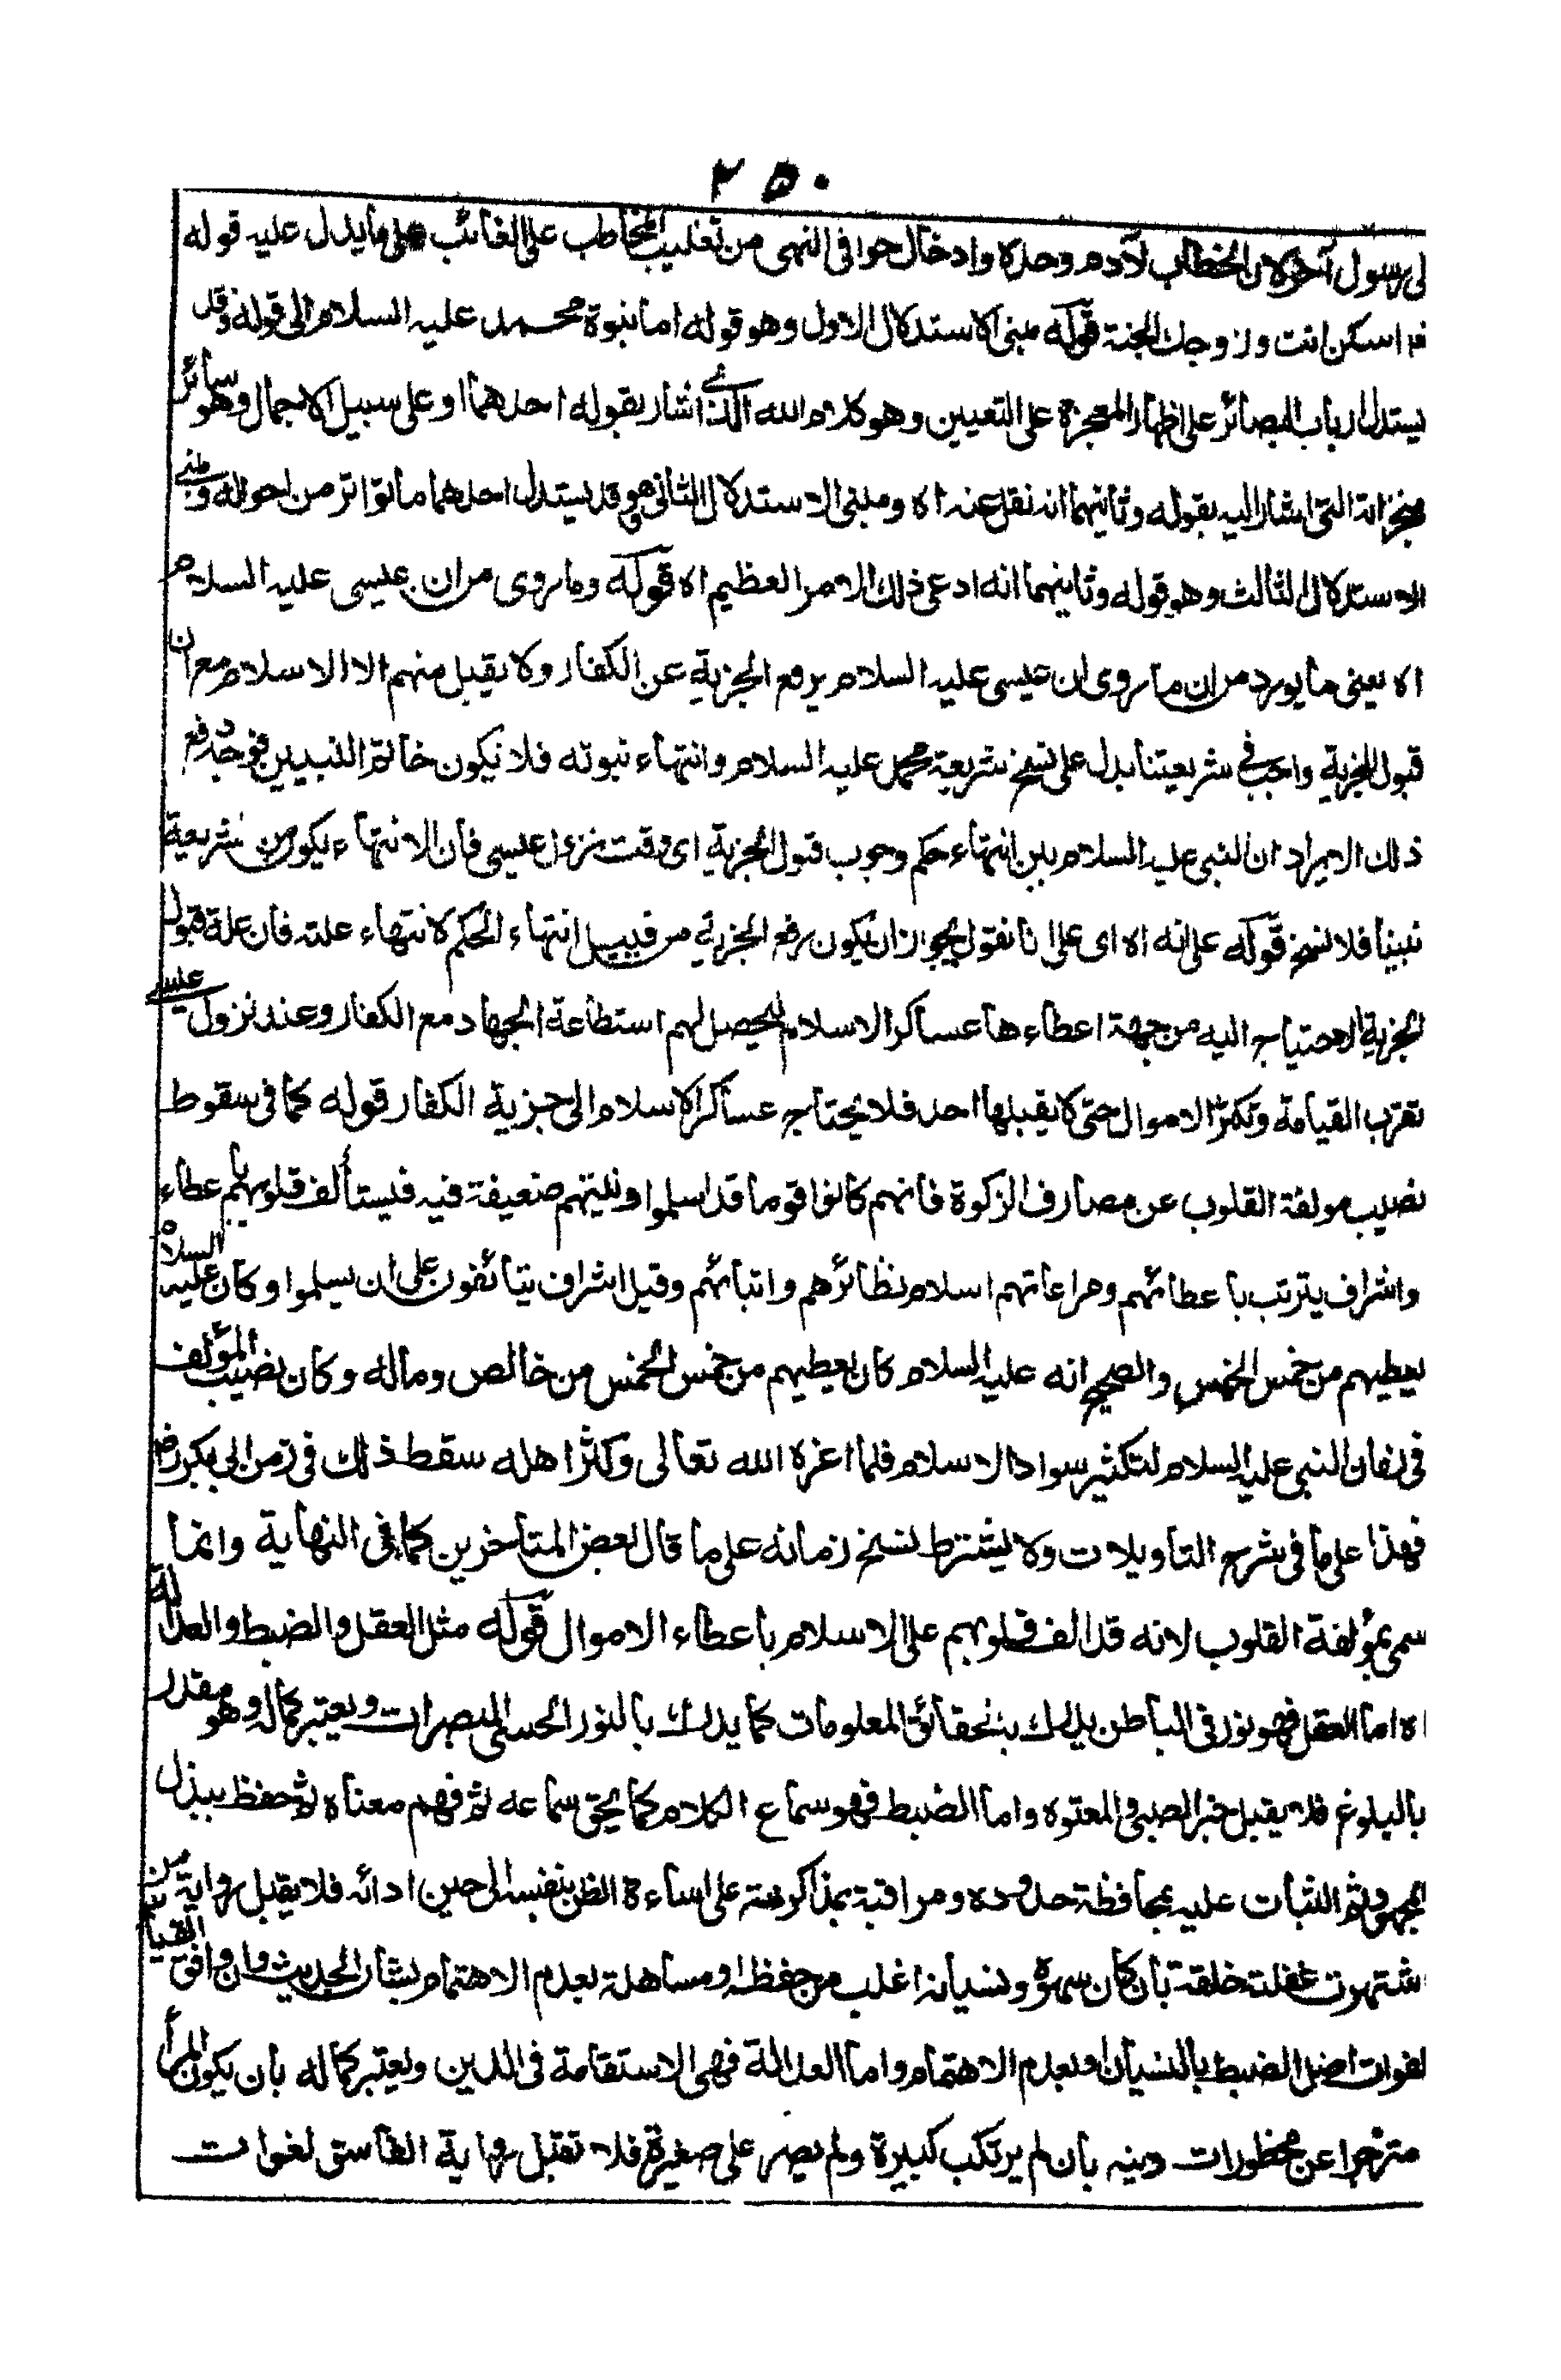 ٢٥٠
لى رسول آخر لان الخطاب لآدم وحده وادخال حوا فى النهى من تغليب المخاطب على الغائب على ما يدل عليه قوله
اسكن انت وزوجك الجنة قوله مبنى الاستدلال الاول وهو قوله اما نبوة محمد عليه السلام الى قوله وقد
يستدل ارباب البصائر على اظهار المعجزة على التعيين وهو كلام الله الذى اشار بقوله احدهما او على سبيل الاجمال وهو سائر
معجزاته التى اشار اليه بقوله وثانيهما انه نقل عنه اه ومبنى الاستدلال الثانى هو قد يستدل احدهما ما تواتر من احواله ومبنى
الاستدلال الثالث وهو قوله وثانيهما انه ادعى ذلك الامر العظيم اه قوله وما روى من ان عيسى عليه السلام
اه يعنى ما يورد من ان ما روى ان عيسى عليه السلام يرفع الجزية عن الكفار ولا يقبل منهم الا الاسلام مع ان
قبول الجزية واجب فى شريعتنا يدل على نسخ شريعة محمد عليه السلام وانتهاء نبوته فلا يكون خاتم النبيين فوجه دفع
ذلك الايراد ان النبى عليه السلام بين انتهاء حكم وجوب قبول الجزية اى وقت نزول عيسى فان الانتهاء يكون من شريعة
نبينا فلا نسخ قوله على انه اه اى على انا نقول يجوز ان يكون رفع الجزية من قبيل انتهاء الحكم لانتهاء علته فان علة قبول
الجزية الاحتياج اليه من جهة اعطاءها عساكر الاسلام ليحصل لهم استطاعة الجهاد مع الكفار وعند نزول عيسى
تقرب القيامة وتكثر الاموال حتى لا يقبلها احد فلا يحتاج عساكر الاسلام الى جزية الكفار قوله كما فى سقوط
نصيب مولفة القلوب عن مصارف الزكوة فانهم كانوا قوما قد اسلموا ونيتهم ضعيفة فيه فيستألف قلوبهم باعطاء
واشراف يترتب باعطائهم ومراعاتهم اسلام نظائرهم واتباعهم وقيل اشراف يتألفون على ان يسلموا وكان عليه السلام
يعطيهم من خمس الخمس والصحيح انه عليه السلام كان يعطيهم من خمس الخمس من خالص وماله وكان نصيب المؤلف
فى زمان النبى عليه السلام لتكثير سواد الاسلام فلما اعزه الله تعالى وكثر اهله سقط ذلك فى زمن ابى بكر رض
فهذا على ما فى شرح التأويلات ولا يشترط لنسخ زمانه على ما قال بعض المتأخرين كما فى النهاية وانما
سمى بمؤلفة القلوب لانه قد الف قلوبهم على الاسلام باعطاء الاموال قوله مثل العقل والضبط والعدالة
اه اما العقل فهو نور فى الباطن يدرك به حقائق المعلومات كما يدرك بالنور الحسى المبصرات ويعتبر كماله وهو مقدر
بالبلوغ فلا يقبل خبر الصبى والمعتوه واما الضبط فهو سماع الكلام كما يحق سماعه ثم فهم معناه ثم حفظ ببذل
المجهود ثم الثبات عليه بمحافظة حدوده ومراقبة بمذاكرته على اساءة الظن بنفسه الى حين ادائه فلا يقبل رواية من
اشتهرت غفلته خلقة بان كان سهوه ونسيانه اغلب من حفظه او مساهلة بعدم الاهتمام بشان الحديث وان وافق القياس
لفوات اصل الضبط بالنسيان او بعدم الاهتمام واما العدالة فهى الاستقامة فى الدين ويعتبر كماله بان يكون المرأ
متزجرا عن محظورات دينه بان لم يرتكب كبيرة ولم يصر على صغيرة فلا تقبل رواية الفاسق لفوات